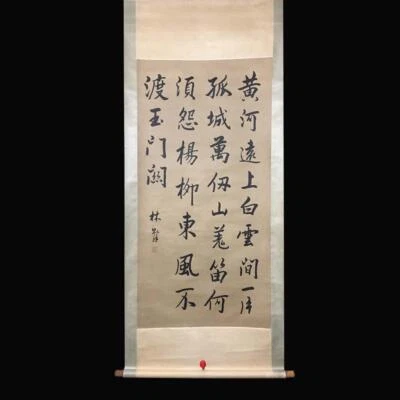 黃河遠上白雲間一片
孤城萬仞山羌笛何
須怨楊柳東風不
渡玉門關
林